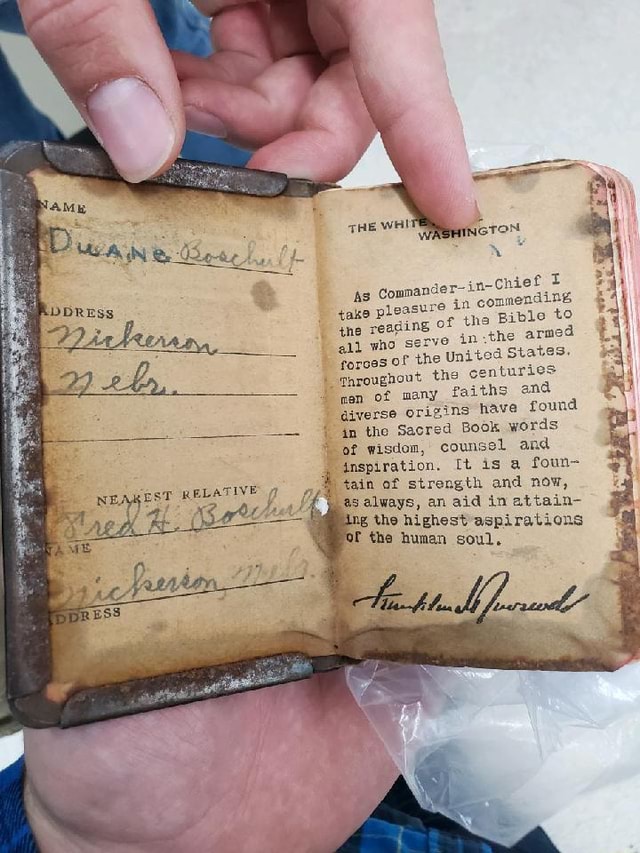 NAME
DUANE Boschult
ADDRESS
Nickerson
Nebr.
NEAREST RELATIVE
Fred H. Boschult
NAME
Nickerson, Nebr.
ADDRESS
THE WHITE
WASHINGTON
As Commander-in-Chief I
take pleasure in commending
the reading of the Bible to
all who serve in the armed
forces of the United States.
Throughout the centuries
men of many faiths and
diverse origins have found
in the Sacred Book words
of wisdom, counsel and
inspiration. It is a foun-
tain of strength and now,
as always, an aid in attain-
ing the highest aspirations
of the human soul.
Franklin D Roosevelt